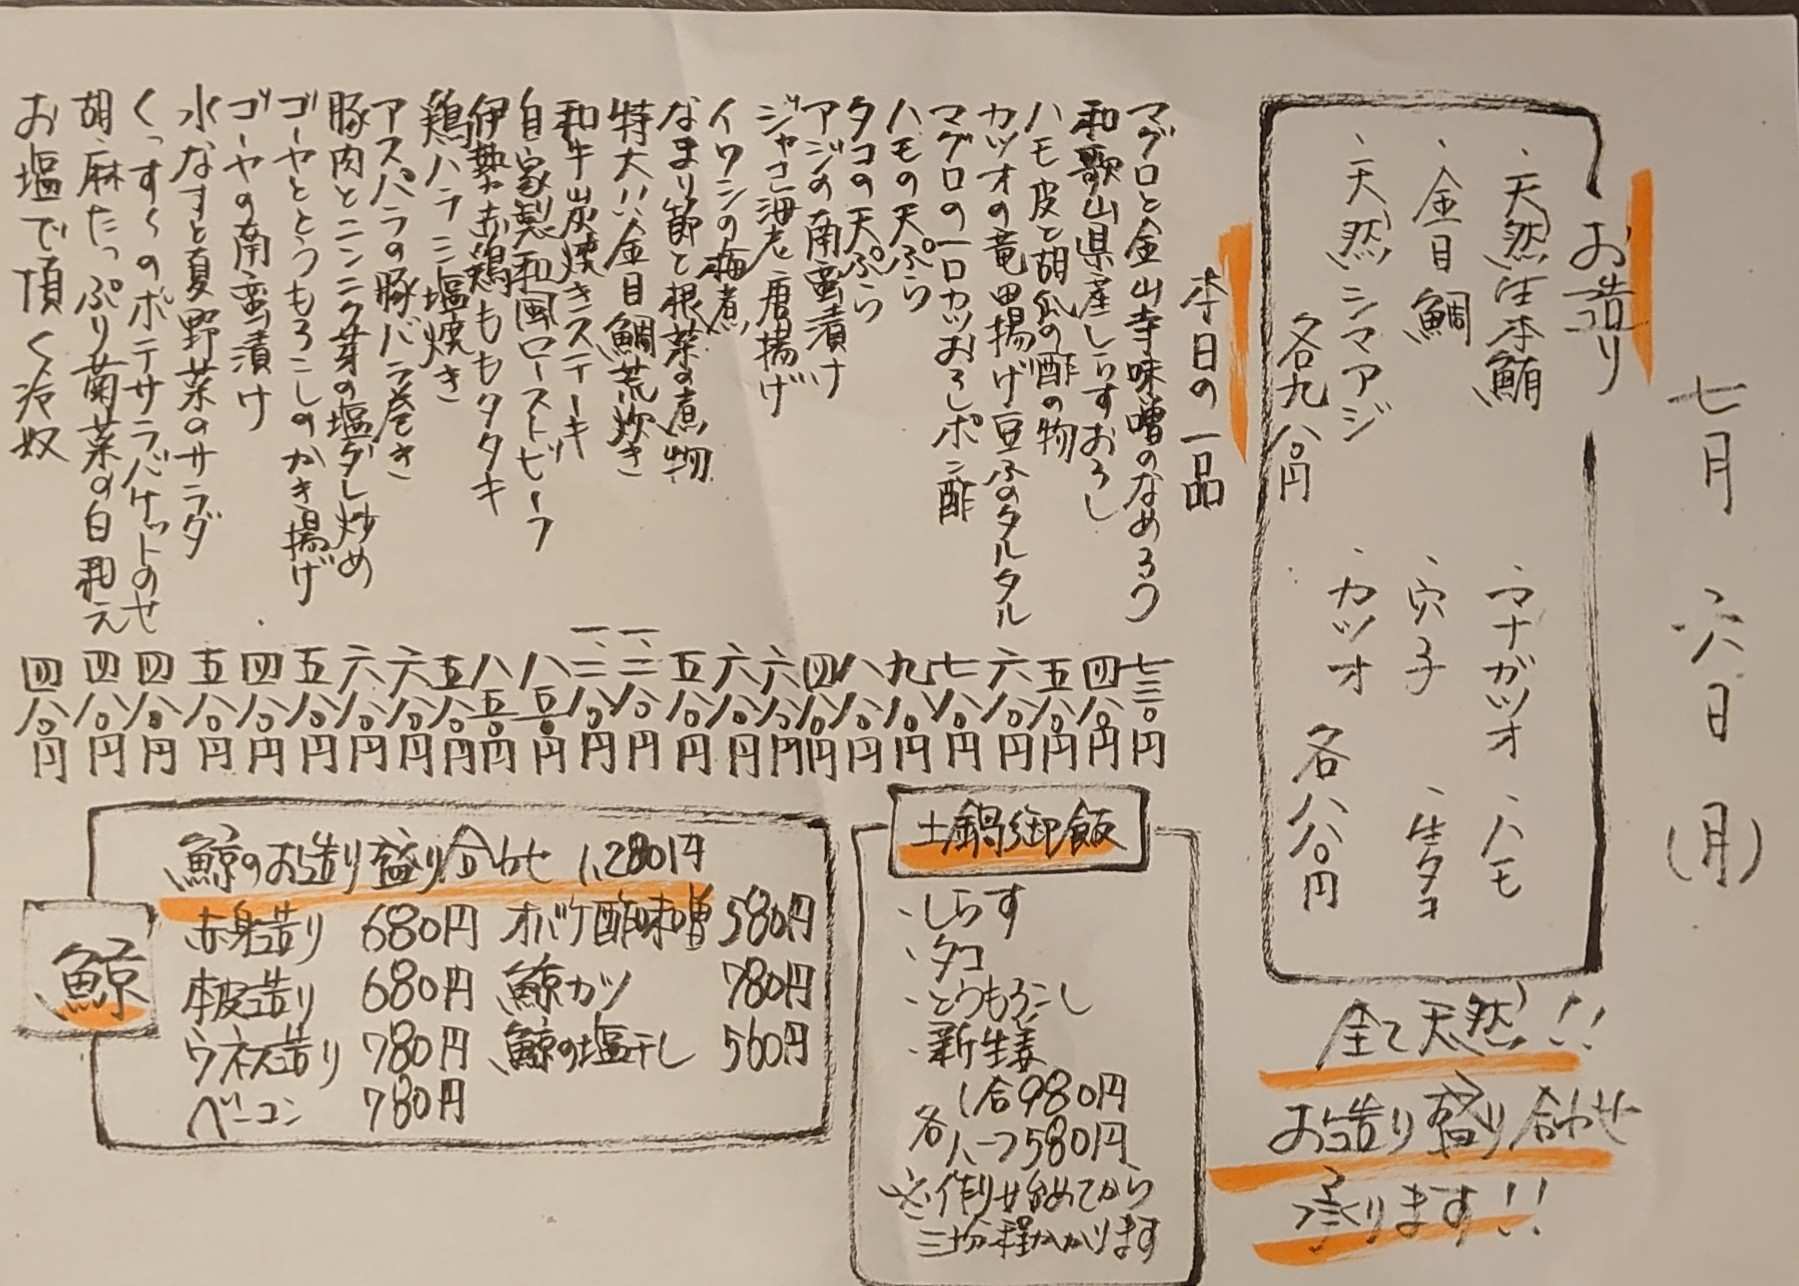 七月六日(月)
お造り
・天然生本鮪
・金目鯛
・天然シマアジ
各九八〇円
・マナガツオ
・ハモ
・穴子
・生タコ
・カツオ
各八八〇円
全て天然!!
お造り盛り合わせ
承ります!!
本日の一品
マグロと金山寺味噌のなめろう 七三〇円
和歌山県産しらすおろし 四八〇円
ハモ皮と胡瓜の酢の物 五八〇円
カツオの竜田揚げ豆ふのタルタル 六八〇円
マグロの一口カツおろしポン酢 七八〇円
ハモの天ぷら 九八〇円
タコの天ぷら 八八〇円
アジの南蛮漬け 四八〇円
ジャコ海老唐揚げ 六八〇円
イワシの梅煮 六八〇円
なまり節と根菜の煮物 五八〇円
特大!!金目鯛荒炊き 一、二八〇円
和牛炭焼きステーキ 一、二八〇円
自家製和風ローストビーフ 八五〇円
伊勢赤鶏ももタタキ 八五〇円
鶏ハラミ塩焼き 五八〇円
アスパラの豚バラ巻き 六八〇円
豚肉とニンニク芽の塩ダレ炒め 六八〇円
ゴーヤととうもろこしのかき揚げ 五八〇円
ゴーヤの南蛮漬け 四八〇円
水なすと夏野菜のサラダ 五八〇円
くんすくのポテサラバケットのせ 四八〇円
胡麻たっぷり菊菜の白和え 四八〇円
お塩で頂く冷奴 四八〇円
土鍋御飯
・しらす
・タコ
・とうもろこし
・新生姜
各 1合980円
ハーフ580円
※作り始めてから
三十分程かかります
鯨
鯨のお造り盛り合わせ 1,280円
赤身造り 680円 オバケ酢味噌 580円
本皮造り 680円 鯨カツ 780円
ウネス造り 780円 鯨の塩干し 560円
ベーコン 780円